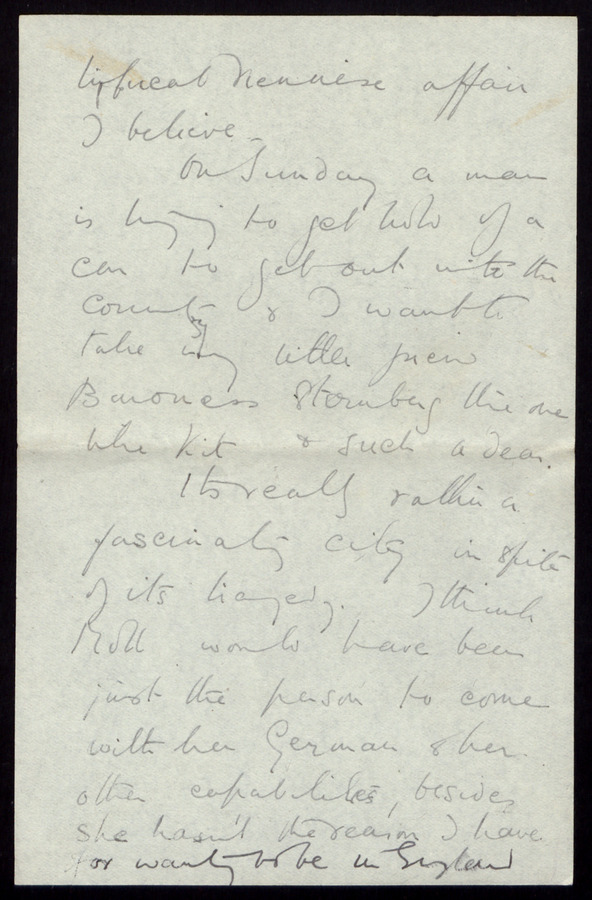 typical Viennese affair
I believe -
On Sunday a man
is trying to get hold of a
car to get out into the
country & I want to
take my little friend
Baroness Sternberg the one
like Kit & such a dear.
Its really rather a
fascinating city in spite
of its tragedy. I think
Moll would have been
just the person to come
with her German & her
other capabilities, besides
she hasn't the reason I have
for wanting to be in England